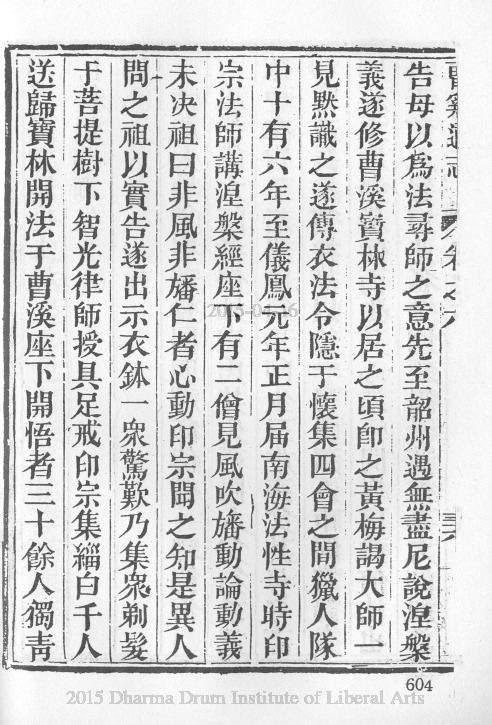 告母以爲法尋師之意先至韶州遇無盡尼說湼槃
義遂修曹溪寶林寺以居之頃卽之黃梅謁大師一
見默識之遂傳衣法令隱于懷集四會之間獵人隊
中十有六年至儀鳳元年正月届南海法性寺時印
宗法師講湼槃經座下有二僧見風吹旛動論動義
未决祖曰非風非旛仁者心動印宗聞之知是異人
問之祖以實告遂出示衣鉢一衆驚歎乃集衆剃髮
于菩提樹下智光律師授具足戒印宗集緇白千人
送歸寶林開法于曹溪座下開悟者三十餘人獨靑
604
2015 Dharma Drum Institute of Liberal Arts